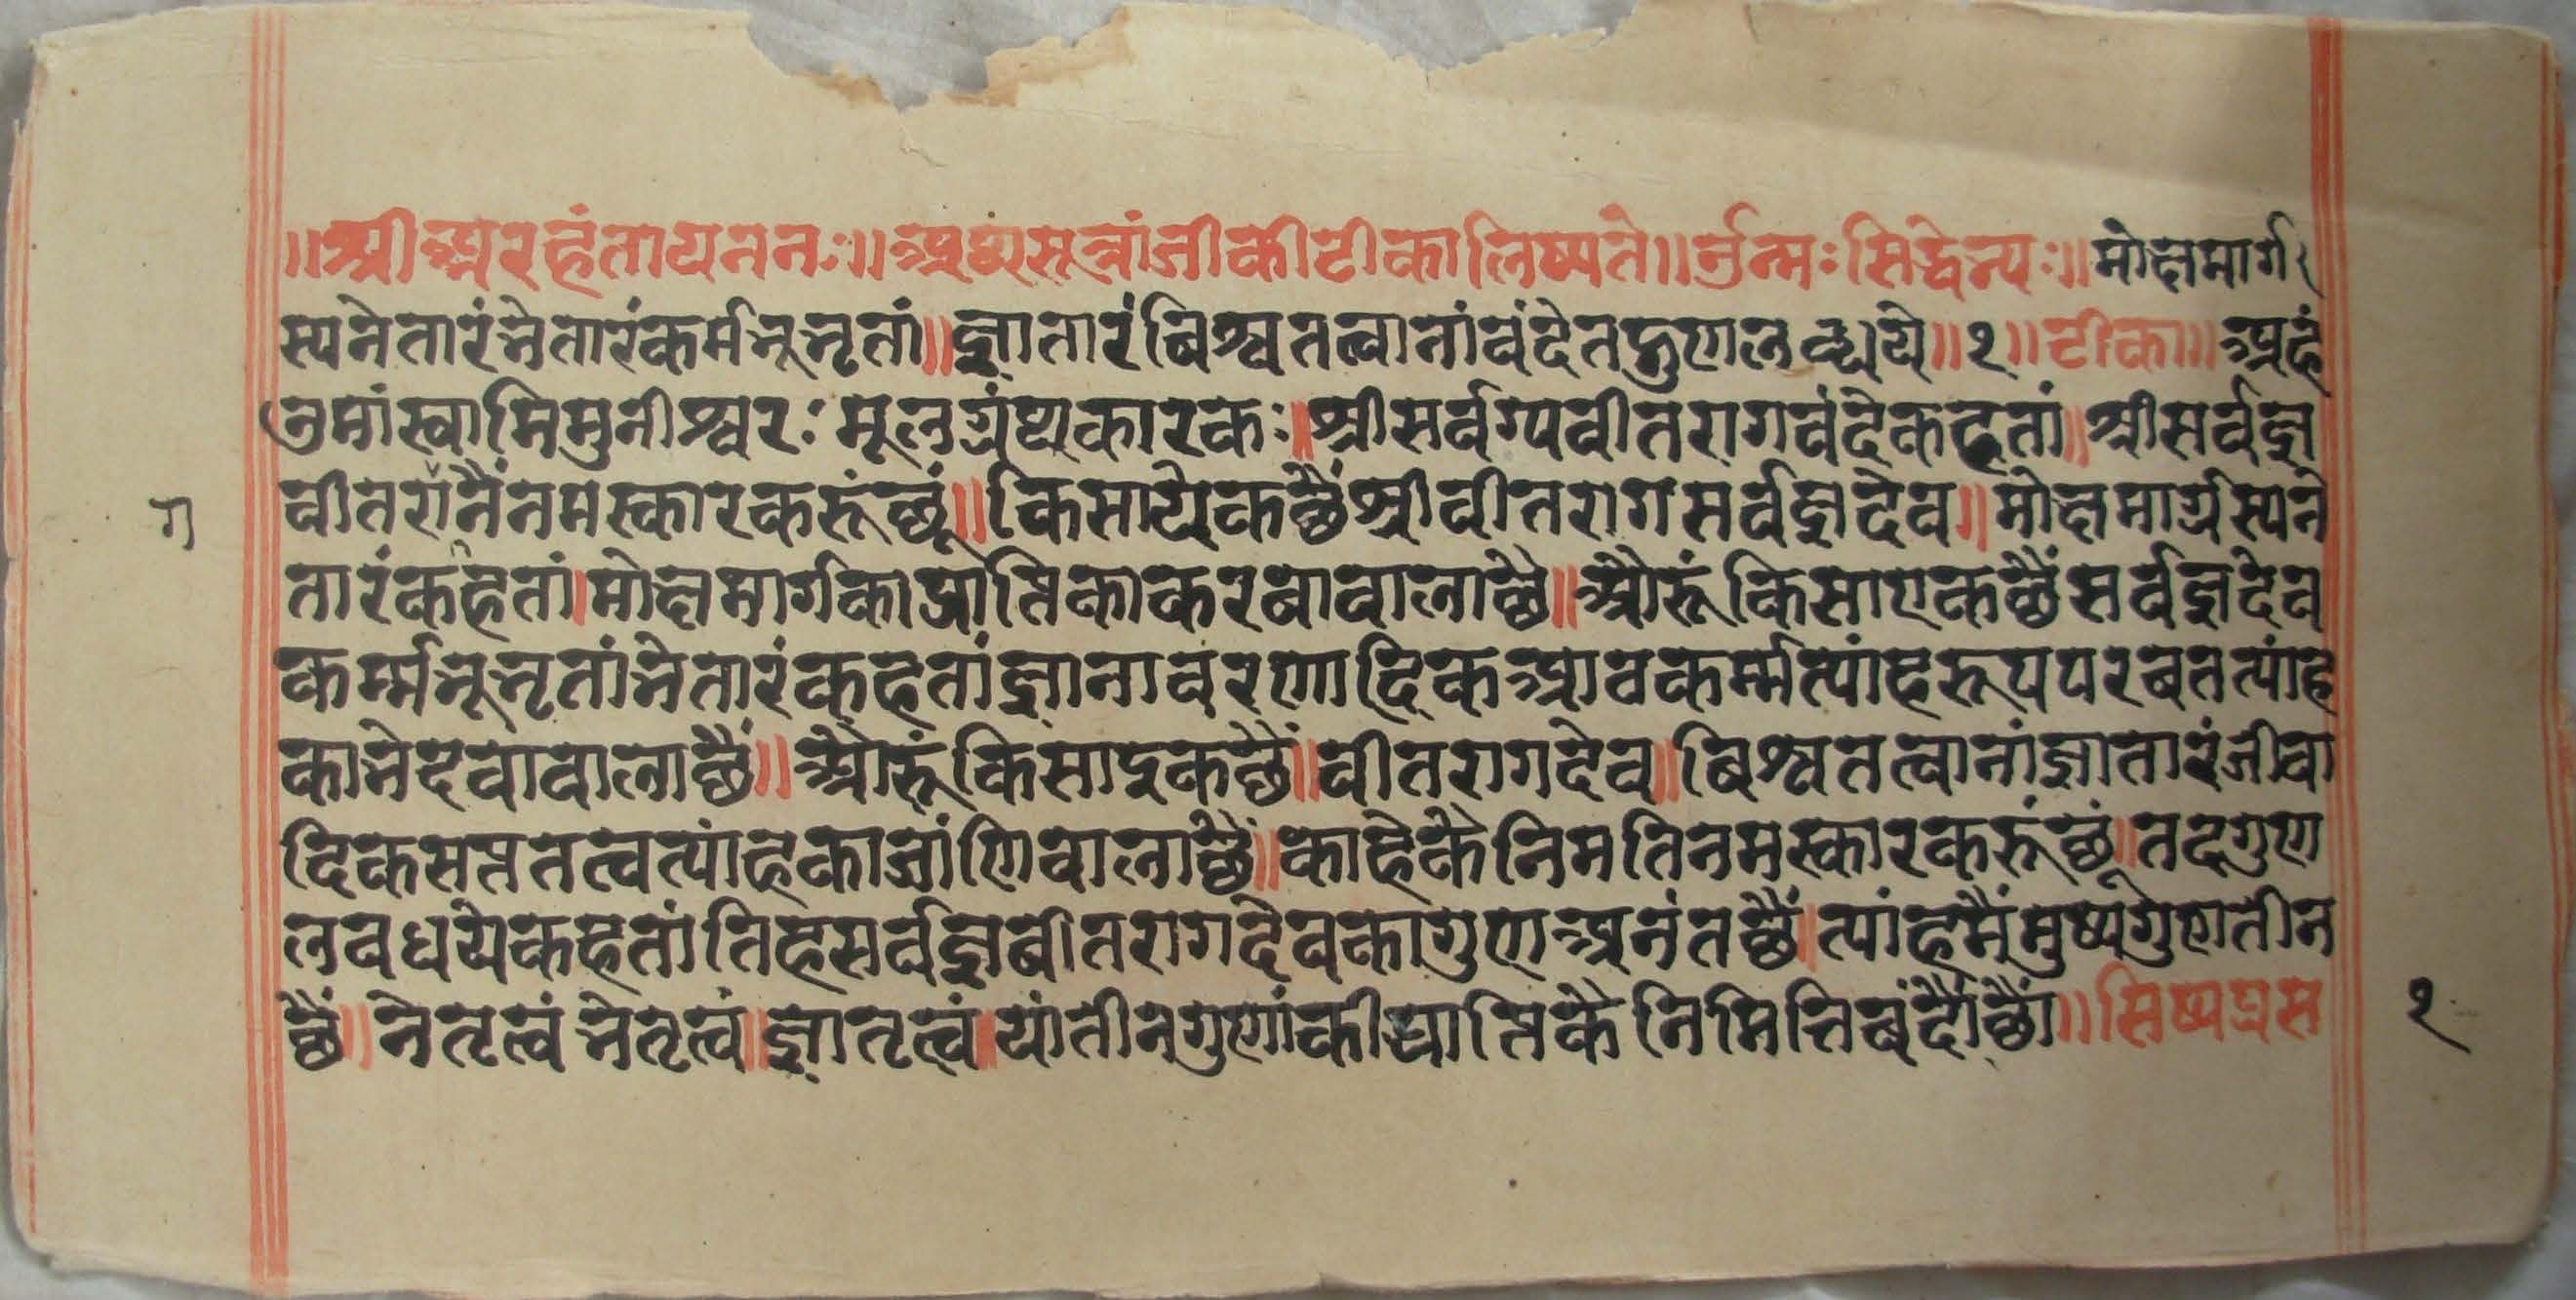 ॥श्रीअरहंतायनमः॥अथसूत्रांजीकीटीकालिष्यते॥ॐनमःसिद्धेभ्यः॥मोक्षमार्ग
स्यनेतारंभेतारंकर्मभूभृतां॥ज्ञातारंविश्वतत्वानांवंदेतद्गुणलब्धये॥१॥टीका॥अहं
उमांस्वामिमुनीश्वरःमूलग्रंथकारकः॥श्रीसर्वग्यवीतरागवंदेकहतां॥श्रीसर्वज्ञ
वीतरांनैंनमस्कारकरूंछूं॥किसायेकछैंश्रीवीतरागसर्वज्ञदेव॥मोक्षमार्गस्यने
ग
तारंकहतां।मोक्षमार्गकाप्राप्तिकाकरबावालाछै॥औरूंकिसाएकछैंसर्वज्ञदेव
कर्म्मभूभृतांभेतारंकहतांज्ञानावरणादिकआवकर्म्मत्यांहरूपपरबतत्यांह
काभेदवावालाछैं॥औरूंकिसाइकछैं॥वीतरागदेव॥विश्वतत्वानांज्ञातारंजीवा
दिकसप्ततत्वत्यांहकाजांणिवालाछैं॥काहेकैनिमतिनमस्कारकरूंछूं॥तदगुण
लबधयेकहतांतिहसर्वज्ञबीतरागदेवकागुणअनंतछैं।त्यांहमैंमुष्यगुणतीन
छैं॥नेतृत्वंभेतृत्वं॥ज्ञातृत्वं॥यांतीनगुणांकीप्राप्तिकैनिमित्तिबंदौंछौं॥सिष्यप्रस
१